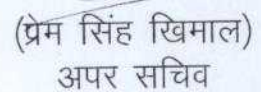 (प्रेम सिंह खिमाल)
अपर सचिव